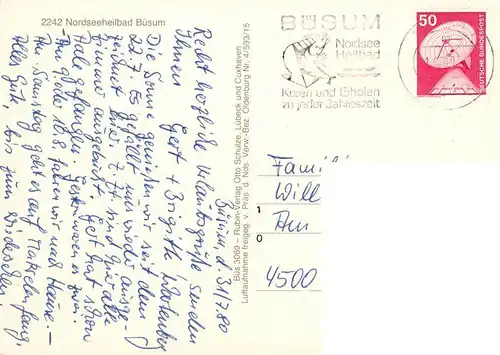 2242 Nordseeheilbad Büsum
BÜSUM
Nordsee
Heilbad
Kuren und Erholen
zu jeder Jahreszeit
50
DEUTSCHE BUNDESPOST
Büsum, d. 31.7.80
Recht herzliche Urlaubsgrüße senden
Ihnen Gert + Brigitte
Die Sonne genießen wir seit dem
22.7. Es gefällt uns wieder ausge-
zeichnet. Hier z. Zt. sind alle
Zimmer ausgebucht. Gert hat schon
Aale gefangen. Gestern waren es zwei.
Am 10.8. fahren wir nach Hause.-
Am Samstag geht es auf Makrelenfang.
Alles Gute, bis zum Wiedersehen!
Büs 3069 – Rubin-Verlag Otto Schulze, Lübeck und Cuxhaven
Luftaufnahme freigeg. v. Präs. d. Nds. Verw.-Bez. Oldenburg Nr. 4/593/15
Famil
Will
Am
4500